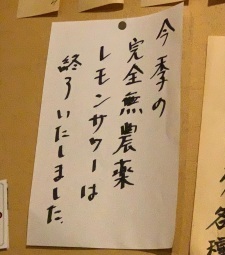 今季の
完全無農薬
レモンサワーは
終了いたしました。
各種